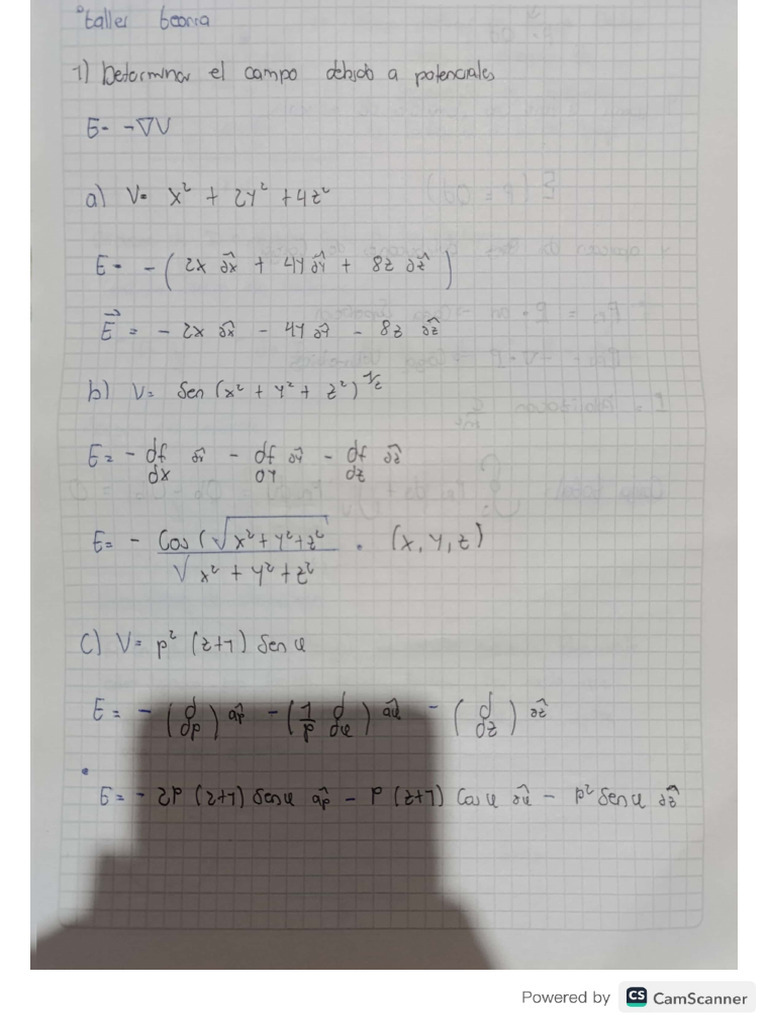 taller teoria
1) Determinar el campo debido a potenciales
E = -∇V
a) V = x² + 2y² + 4z²
E = - ( 2x âx + 4y ây + 8z âz )
E⃗ = - 2x âx - 4y ây - 8z âz
b) V = Sen (x² + y² + z²)^1/2
E = - df/dx âx - df/dy ây - df/dz âz
E = - Cos (√x² + y² + z² / √x² + y² + z² · (x, y, z)
c) V = ρ² (z+1) Sen φ
E = - (d/dρ) âρ - (1/ρ d/dφ) âφ - (d/dz) âz
E = - 2ρ (z+1) Sen φ âρ - ρ (z+1) Cos φ âφ - ρ² Sen φ âz
Powered by CS CamScanner